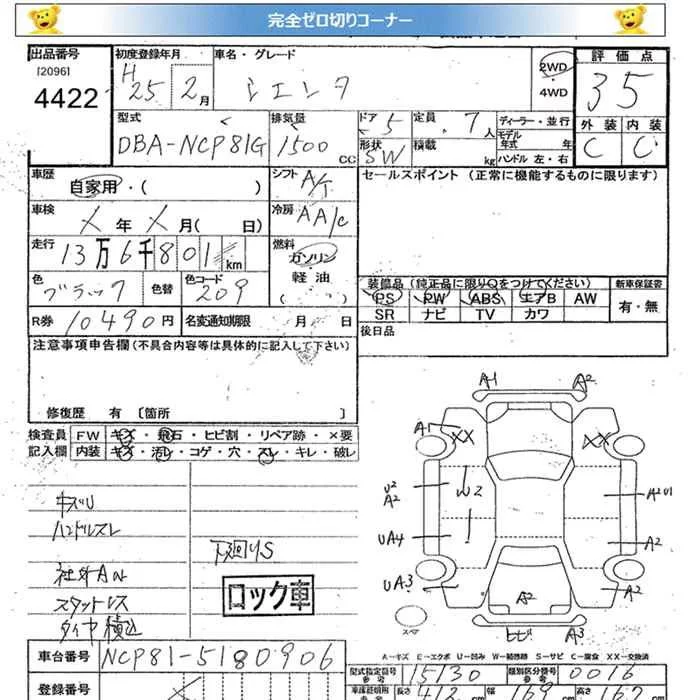 完全ゼロ切りコーナー
出品番号 初度登録年月 車名・グレード 評価点
[2096]
4422 H25 2月 シエンタ 2WD ・4WD 35
型式 排気量 ドア 5 定員 7人 ディーラー・並行 外装 内装
DBA-NCP81G 1500cc 形状 SW 積載 kg モデル年式 年 ハンドル 左・右 C C
車歴 シフト A/T セールスポイント(正常に機能するものに限ります)
自家用・( )
車検 冷房 AA/C
X年X月( 日)
走行 燃料
13万6千801km ガソリン・軽油
色 色替 色コード ( ) 装備品(純正品に限り○をつけてください) 新車保証書
ブラック 209 PS PW ABS エアB AW 有・無
R券 10490円 名変通知期限 月 日 SR ナビ TV カワ
注意事項申告欄(不具合内容等は具体的に記入して下さい) 後日品
修復歴 有 [箇所 ]
検査員 FW キズ・飛石・ヒビ割・リペア跡・×要
記入欄 内装 キズ・汚レ・コゲ・穴・スレ・キレ・破レ
キズU
ハンドルスレ
下廻りS
社外AW
スタットレス
タイヤ積込
ロック車
A1 A2
A1 XX XX
U2
A2 U2 A2U1
UA4 A2
UA3 A2 A2
スペア ヒビ A3
A-キズ E-エクボ U-凹み W-補修跡 S-サビ C-腐食 XX-交換済
車台番号 NCP81-5180906
型式指定番号 参考 15130 類別区分番号 参考 0016
登録番号
長さ 412 幅 169 高さ 167